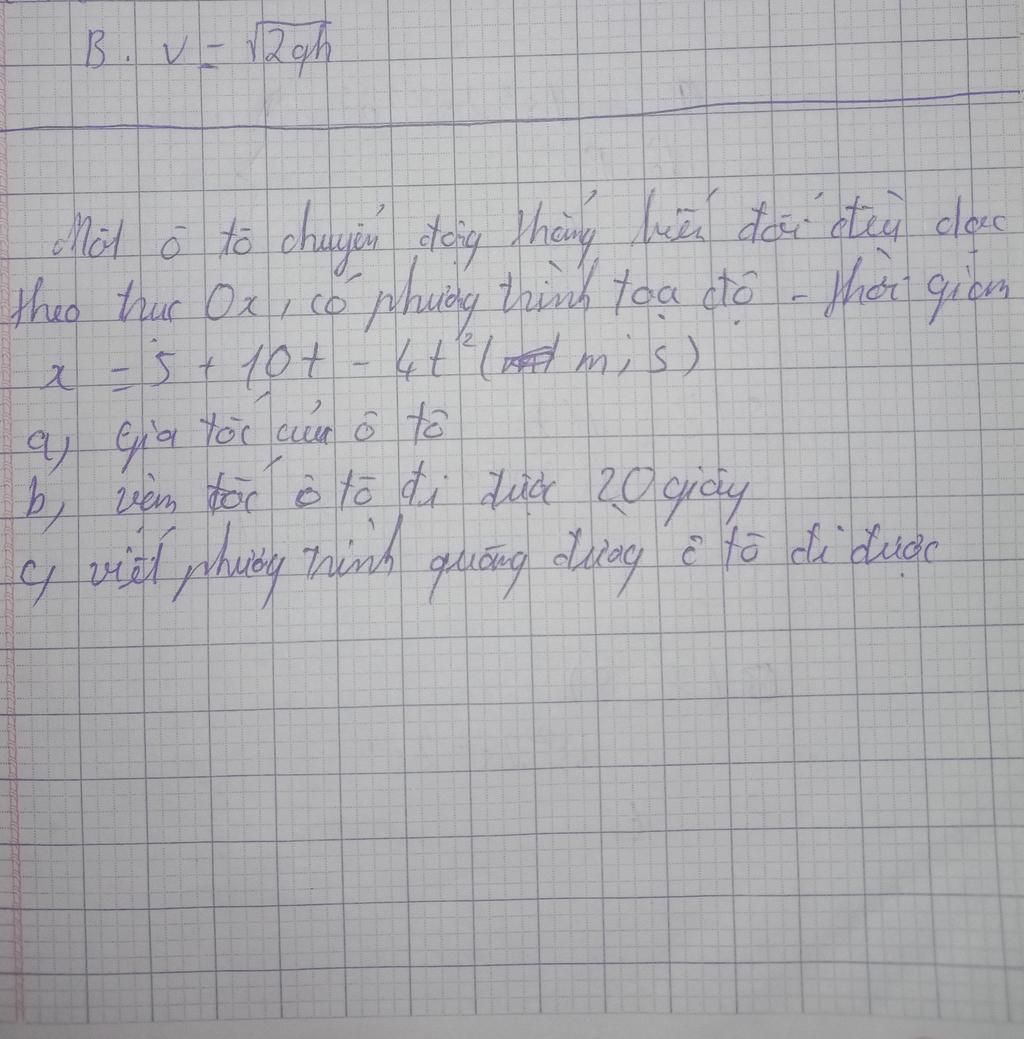 B. v = √2gh
Một ô tô chuyển động thẳng biến đổi đều dọc
theo trục Ox, có phương trình tọa độ - thời gian
x = 5 + 10t - 4t² ( m; s)
a, Gia tốc của ô tô
b, vận tốc ô tô đi được 20 giây
c, viết phương trình quãng đường ô tô đi được